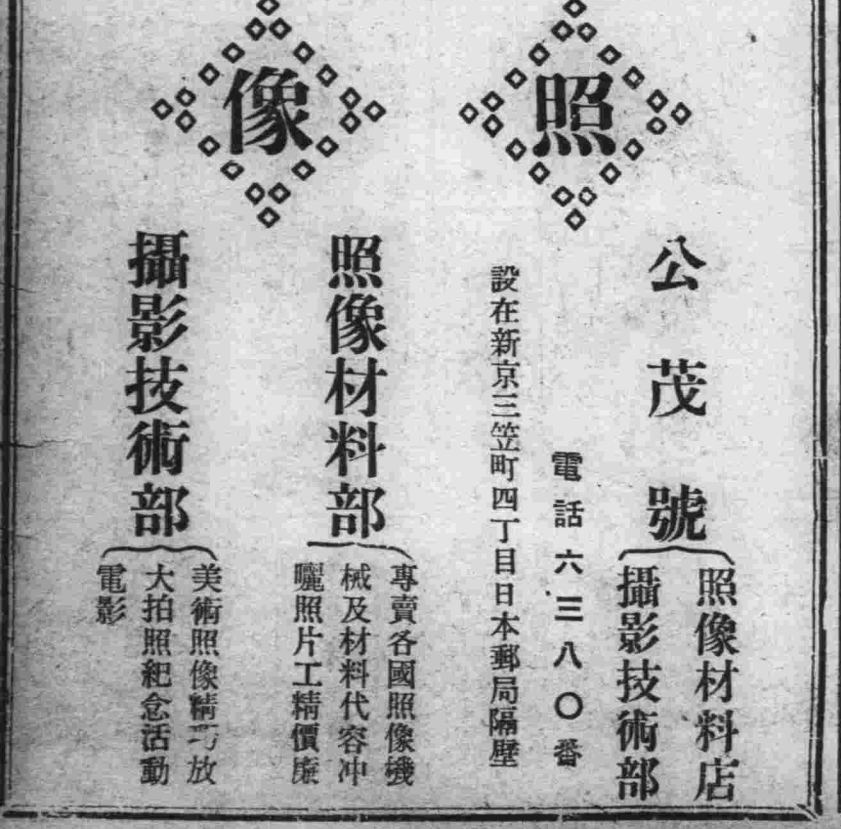 照像
公茂號
照像材料店
攝影技術部
電話六三八〇番
設在新京三笠町四丁目日本郵局隔壁
照像材料部
專賣各國照像機
械及材料代容冲
曬照片工精價廉
攝影技術部
美術照像精巧放
大拍照紀念活動
電影